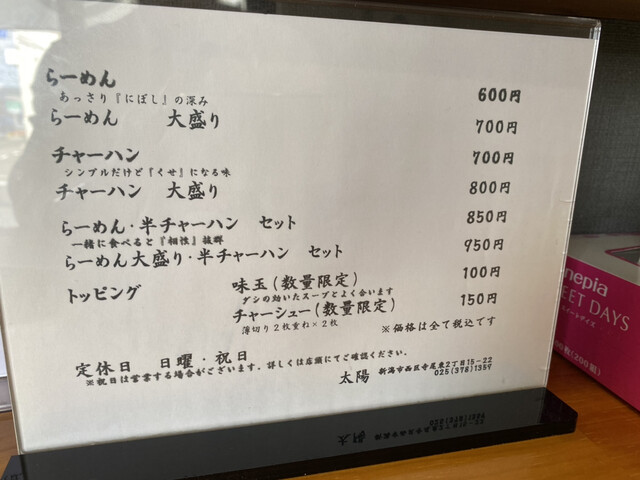 らーめん 600円
あっさり『にぼし』の深み
らーめん 大盛り 700円
チャーハン 700円
シンプルだけど『くせ』になる味
チャーハン 大盛り 800円
らーめん・半チャーハン セット 850円
一緒に食べると『相性』抜群
らーめん大盛り・半チャーハン セット 950円
トッピング 味玉(数量限定) 100円
ダシの効いたスープとよく合います
チャーシュー(数量限定) 150円
薄切り2枚重ね×2枚
※価格は全て税込です
定休日 日曜・祝日
※祝日は営業する場合がございます。詳しくは店頭にてご確認ください。
太陽 新潟市西区寺尾東2丁目15-22
025(378)1359
nepia
EET DAYS
スイートデイズ
(200組)